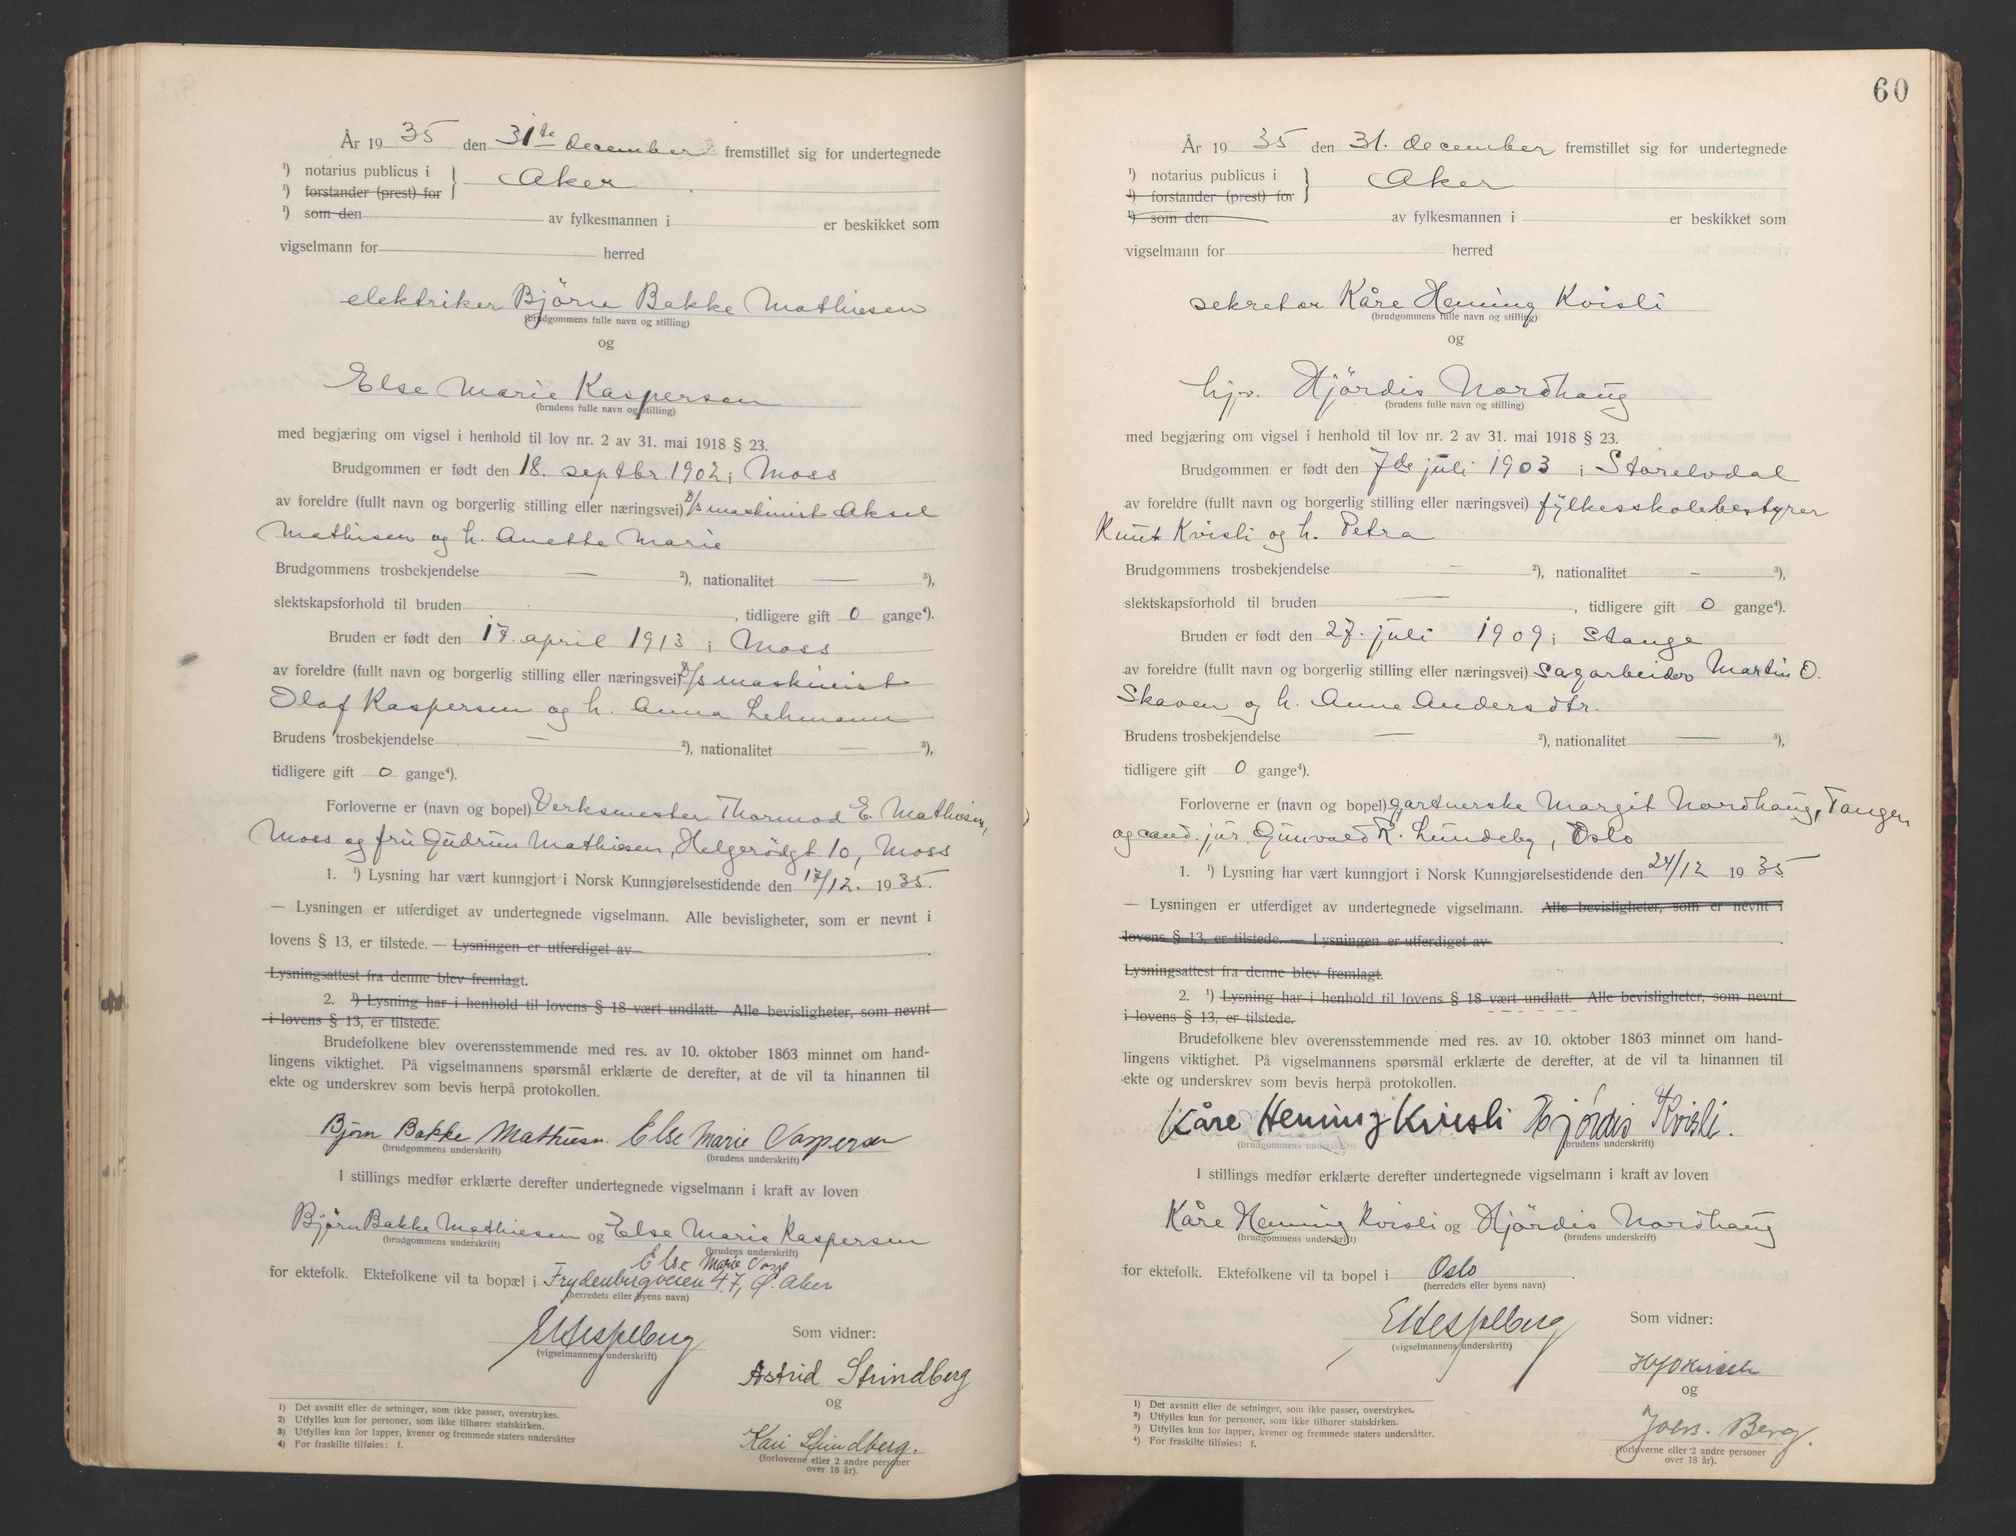 År 19 35 den 31te december fremstillet sig for undertegnede
¹) notarius publicus i
¹) forstander (prest) for } Aker
¹) som den av fylkesmannen i er beskikket som
vigselmann for herred
elektriker Björn Bakke Mathiesen
(brudgommens fulle navn og stilling)
og
Else Marie Kaspersen
(brudens fulle navn og stilling)
med begjæring om vigsel i henhold til lov nr. 2 av 31. mai 1918 § 23.
Brudgommen er født den 18. septbr. 1902 i Moss
av foreldre (fullt navn og borgerlig stilling eller næringsvei) D/s maskinist Aksel
Mathisen og h. Anette Marie
Brudgommens trosbekjendelse — ²), nationalitet — ³),
slektskapsforhold til bruden , tidligere gift 0 gange⁴).
Bruden er født den 17. april 1913 i Moss
av foreldre (fullt navn og borgerlig stilling eller næringsvei) D/s maskinist
Olaf Kaspersen og h. Anna Lehmann
Brudens trosbekjendelse — ²), nationalitet — ³),
tidligere gift 0 gange⁴).
Forloverne er (navn og bopel) Verksmester Thormod E. Mathiesen,
Moss og fru Gudrun Mathiesen, Helgerödgt. 10, Moss
1. ¹) Lysning har vært kunngjort i Norsk Kunngjørelsestidende den 17/12. 1935.
— Lysningen er utferdiget av undertegnede vigselmann. Alle bevisligheter, som er nevnt i
lovens § 13, er tilstede. — Lysningen er utferdiget av
Lysningsattest fra denne blev fremlagt.
2. ¹) Lysning har i henhold til lovens § 18 vært undlatt. Alle bevisligheter, som nevnt
i lovens § 13, er tilstede.
Brudefolkene blev overensstemmende med res. av 10. oktober 1863 minnet om hand-
lingens viktighet. På vigselmannens spørsmål erklærte de derefter, at de vil ta hinannen til
ekte og underskrev som bevis herpå protokollen.
Bjørn Bakke Mathiesen. Else Marie Caspersen
(brudgommens underskrift) (brudens underskrift)
I stillings medfør erklærte derefter undertegnede vigselmann i kraft av loven
Björn Bakke Mathiesen og Else Marie Kaspersen
(brudgommens underskrift) (brudens underskrift)
Else Marie Casp
for ektefolk. Ektefolkene vil ta bopæl i Frydenbergveien 47, Ø. Aker
(herredets eller byens navn)
Som vidner:
(vigselmannens underskrift)
Astrid Strindberg
og
Kari Strindberg.
(forloverne eller 2 andre personer
over 18 år).
1) Det avsnitt eller de setninger, som ikke passer, overstrykes.
2) Utfylles kun for personer, som ikke tilhører statskirken.
3) Utfylles kun for lapper, kvener og fremmede staters undersåtter
4) For fraskilte tilføies: f.
60
År 19 35 den 31. december fremstillet sig for undertegnede
¹) notarius publicus i
¹) forstander (prest) for } Aker
¹) som den av fylkesmannen i er beskikket som
vigselmann for herred
sekretær Kåre Heming Kvisli
(brudgommens fulle navn og stilling)
og
hjv. Hjördis Nordhaug
(brudens fulle navn og stilling)
med begjæring om vigsel i henhold til lov nr. 2 av 31. mai 1918 § 23.
Brudgommen er født den 7de juli 1903 i Storelvdal
av foreldre (fullt navn og borgerlig stilling eller næringsvei) fylkesskolebestyrer
Knut Kvisli og h. Petra
Brudgommens trosbekjendelse — ²), nationalitet — ³),
slektskapsforhold til bruden — , tidligere gift 0 gange⁴).
Bruden er født den 27. juli 1909 i Stange
av foreldre (fullt navn og borgerlig stilling eller næringsvei) Sagarbeider Martin O.
Skaven og h. Anne Andersdtr.
Brudens trosbekjendelse — ²), nationalitet — ³),
tidligere gift 0 gange⁴).
Forloverne er (navn og bopel) gartnerske Margit Nordhaug, Tangen
og cand. jur. Gunvald R. Lundeby, Oslo
1. ¹) Lysning har vært kunngjort i Norsk Kunngjørelsestidende den 24/12 1935
— Lysningen er utferdiget av undertegnede vigselmann. Alle bevisligheter, som er nevnt i
lovens § 13, er tilstede. — Lysningen er utferdiget av
Lysningsattest fra denne blev fremlagt.
2. ¹) Lysning har i henhold til lovens § 18 vært undlatt. Alle bevisligheter, som nevnt
i lovens § 13, er tilstede.
Brudefolkene blev overensstemmende med res. av 10. oktober 1863 minnet om hand-
lingens viktighet. På vigselmannens spørsmål erklærte de derefter, at de vil ta hinannen til
ekte og underskrev som bevis herpå protokollen.
Kåre Heming Kvisli Hjørdis Kvisli.
(brudgommens underskrift) (brudens underskrift)
I stillings medfør erklærte derefter undertegnede vigselmann i kraft av loven
Kåre Heming Kvisli og Hjördis Nordhaug
(brudgommens underskrift) (brudens underskrift)
for ektefolk. Ektefolkene vil ta bopel i Oslo
(herredets eller byens navn)
Som vidner:
(vigselmannens underskrift)
og
Johs. Berg.
(forloverne eller 2 andre personer
over 18 år).
1) Det avsnitt eller de setninger, som ikke passer, overstrykes.
2) Utfylles kun for personer, som ikke tilhører statskirken.
3) Utfylles kun for lapper, kvener og fremmede staters undersåtter.
4) For fraskilte tilføies: f.